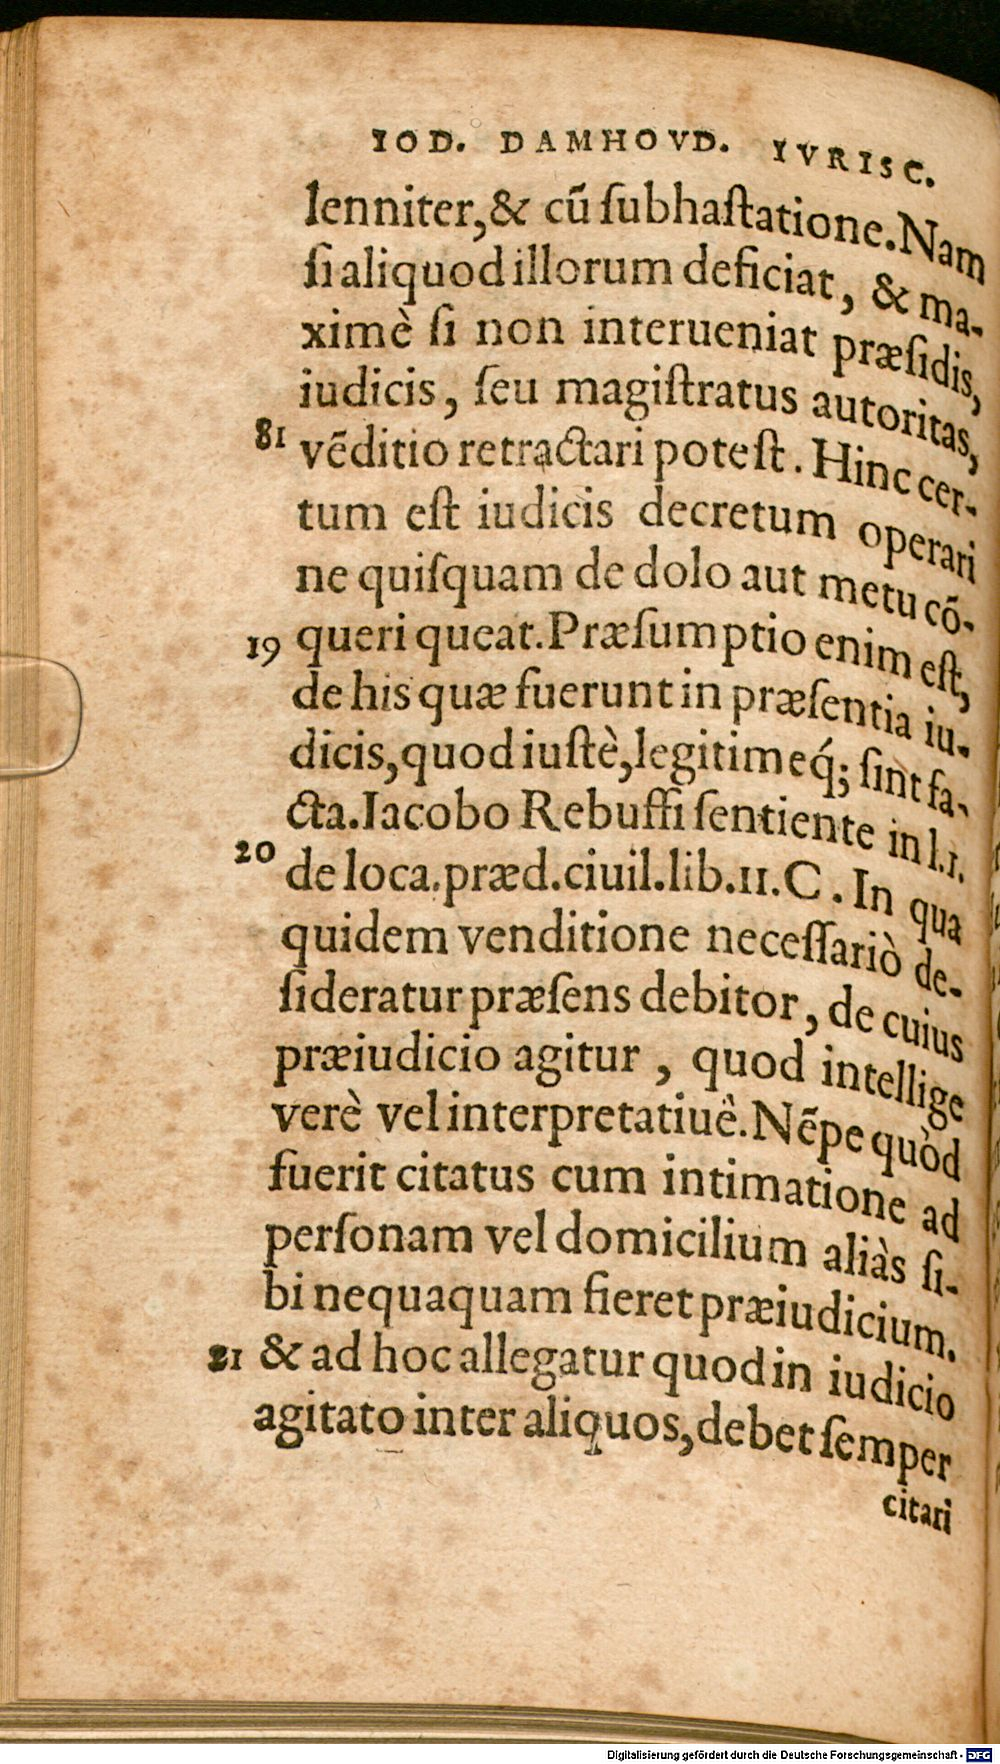 IOD. DAMHOVD. IVRISC.
lenniter, & cū ſubhaſtatione. Nam
ſi aliquod illorum deficiat, & ma-
ximè ſi non interueniat præſidis,
iudicis, ſeu magiſtratus autoritas,
81 vēditio retractari poteſt. Hinc cer-
tum eſt iudicis decretum operari
ne quiſquam de dolo aut metu cō-
19 queri queat. Præſumptio enim eſt,
de his quæ fuerunt in præſentia iu-
dicis, quod iuſtè, legitimeq́; ſint fa-
cta. Iacobo Rebuffi ſentiente in l.1.
20 de loca. præd. ciuil. lib. 11. C. In qua
quidem venditione neceſſariò de-
ſideratur præſens debitor, de cuius
præiudicio agitur, quod intellige
verè vel interpretatiuè. Nēpe quòd
fuerit citatus cum intimatione ad
perſonam vel domicilium aliàs ſi-
bi nequaquam fieret præiudicium.
21 & ad hoc allegatur quod in iudicio
agitato inter aliquos, debet ſemper
citari
Digitalisierung gefördert durch die Deutsche Forschungsgemeinschaft - DFG